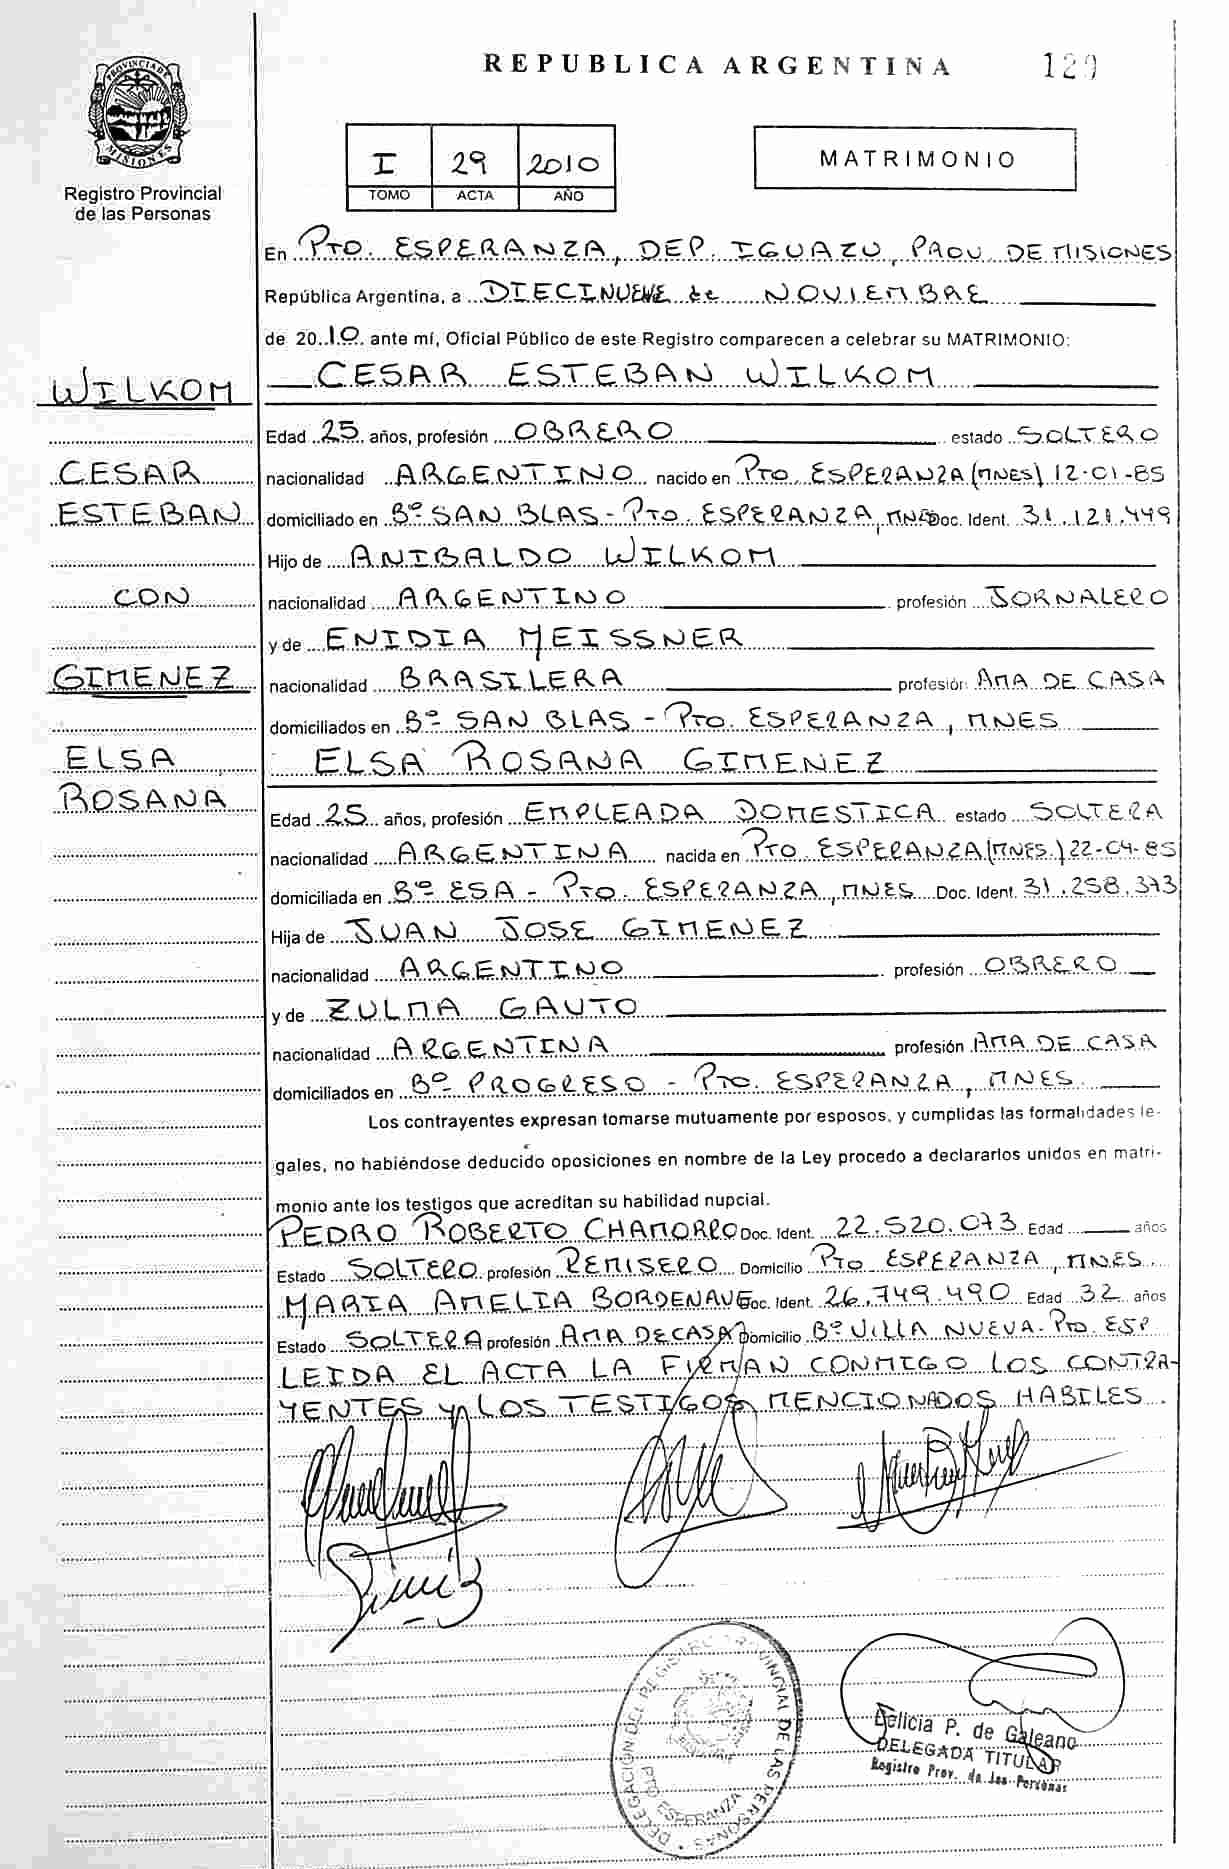 REPUBLICA ARGENTINA 129
PROVINCIA DE MISIONES
Registro Provincial
de las Personas
I 29 2010
TOMO ACTA AÑO
MATRIMONIO
En PTO. ESPERANZA, DEP. IGUAZU, PROV. DE MISIONES
República Argentina, a DIECINUEVE de NOVIEMBRE
de 2010 ante mí, Oficial Público de este Registro comparecen a celebrar su MATRIMONIO:
WILKOM CESAR ESTEBAN WILKOM
Edad 25 años, profesión OBRERO estado SOLTERO
CESAR nacionalidad ARGENTINO nacido en PTO. ESPERANZA (MNES) 12-01-85
ESTEBAN domiciliado en Bº SAN BLAS - PTO. ESPERANZA, MNES Doc. Ident. 31.121.449
Hijo de ANIBALDO WILKOM
CON nacionalidad ARGENTINO profesión JORNALERO
y de ENIDIA MEISSNER
GIMENEZ nacionalidad BRASILERA profesión AMA DE CASA
domiciliados en Bº SAN BLAS - PTO. ESPERANZA, MNES
ELSA ELSA ROSANA GIMENEZ
ROSANA Edad 25 años, profesión EMPLEADA DOMESTICA estado SOLTERA
nacionalidad ARGENTINA nacida en PTO ESPERANZA (MNES.) 22-04-85
domiciliada en Bº ESA - PTO. ESPERANZA, MNES Doc. Ident. 31.258.373
Hija de JUAN JOSE GIMENEZ
nacionalidad ARGENTINO profesión OBRERO
y de ZULMA GAUTO
nacionalidad ARGENTINA profesión AMA DE CASA
domiciliados en Bº PROGRESO - PTO. ESPERANZA, MNES.
Los contrayentes expresan tomarse mutuamente por esposos, y cumplidas las formalidades le-
gales, no habiéndose deducido oposiciones en nombre de la Ley procedo a declararlos unidos en matri-
monio ante los testigos que acreditan su habilidad nupcial.
PEDRO ROBERTO CHAMORRO Doc. Ident. 22.520.073 Edad años
Estado SOLTERO profesión REMISERO Domicilio PTO ESPERANZA, MNES.
MARIA AMELIA BORDENAVE Doc. Ident. 26.749.490 Edad 32 años
Estado SOLTERA profesión AMA DE CASA Domicilio Bº VILLA NUEVA-PTO. ESP
LEIDA EL ACTA LA FIRMAN CONMIGO LOS CONTRA-
YENTES y LOS TESTIGOS MENCIONADOS HABILES.
DELEGACION DEL REGISTRO PROVINCIAL DE LAS PERSONAS
PTO ESPERANZA
Delicia P. de Galeano
DELEGADA TITULAR
Registro Prov. de las Personas